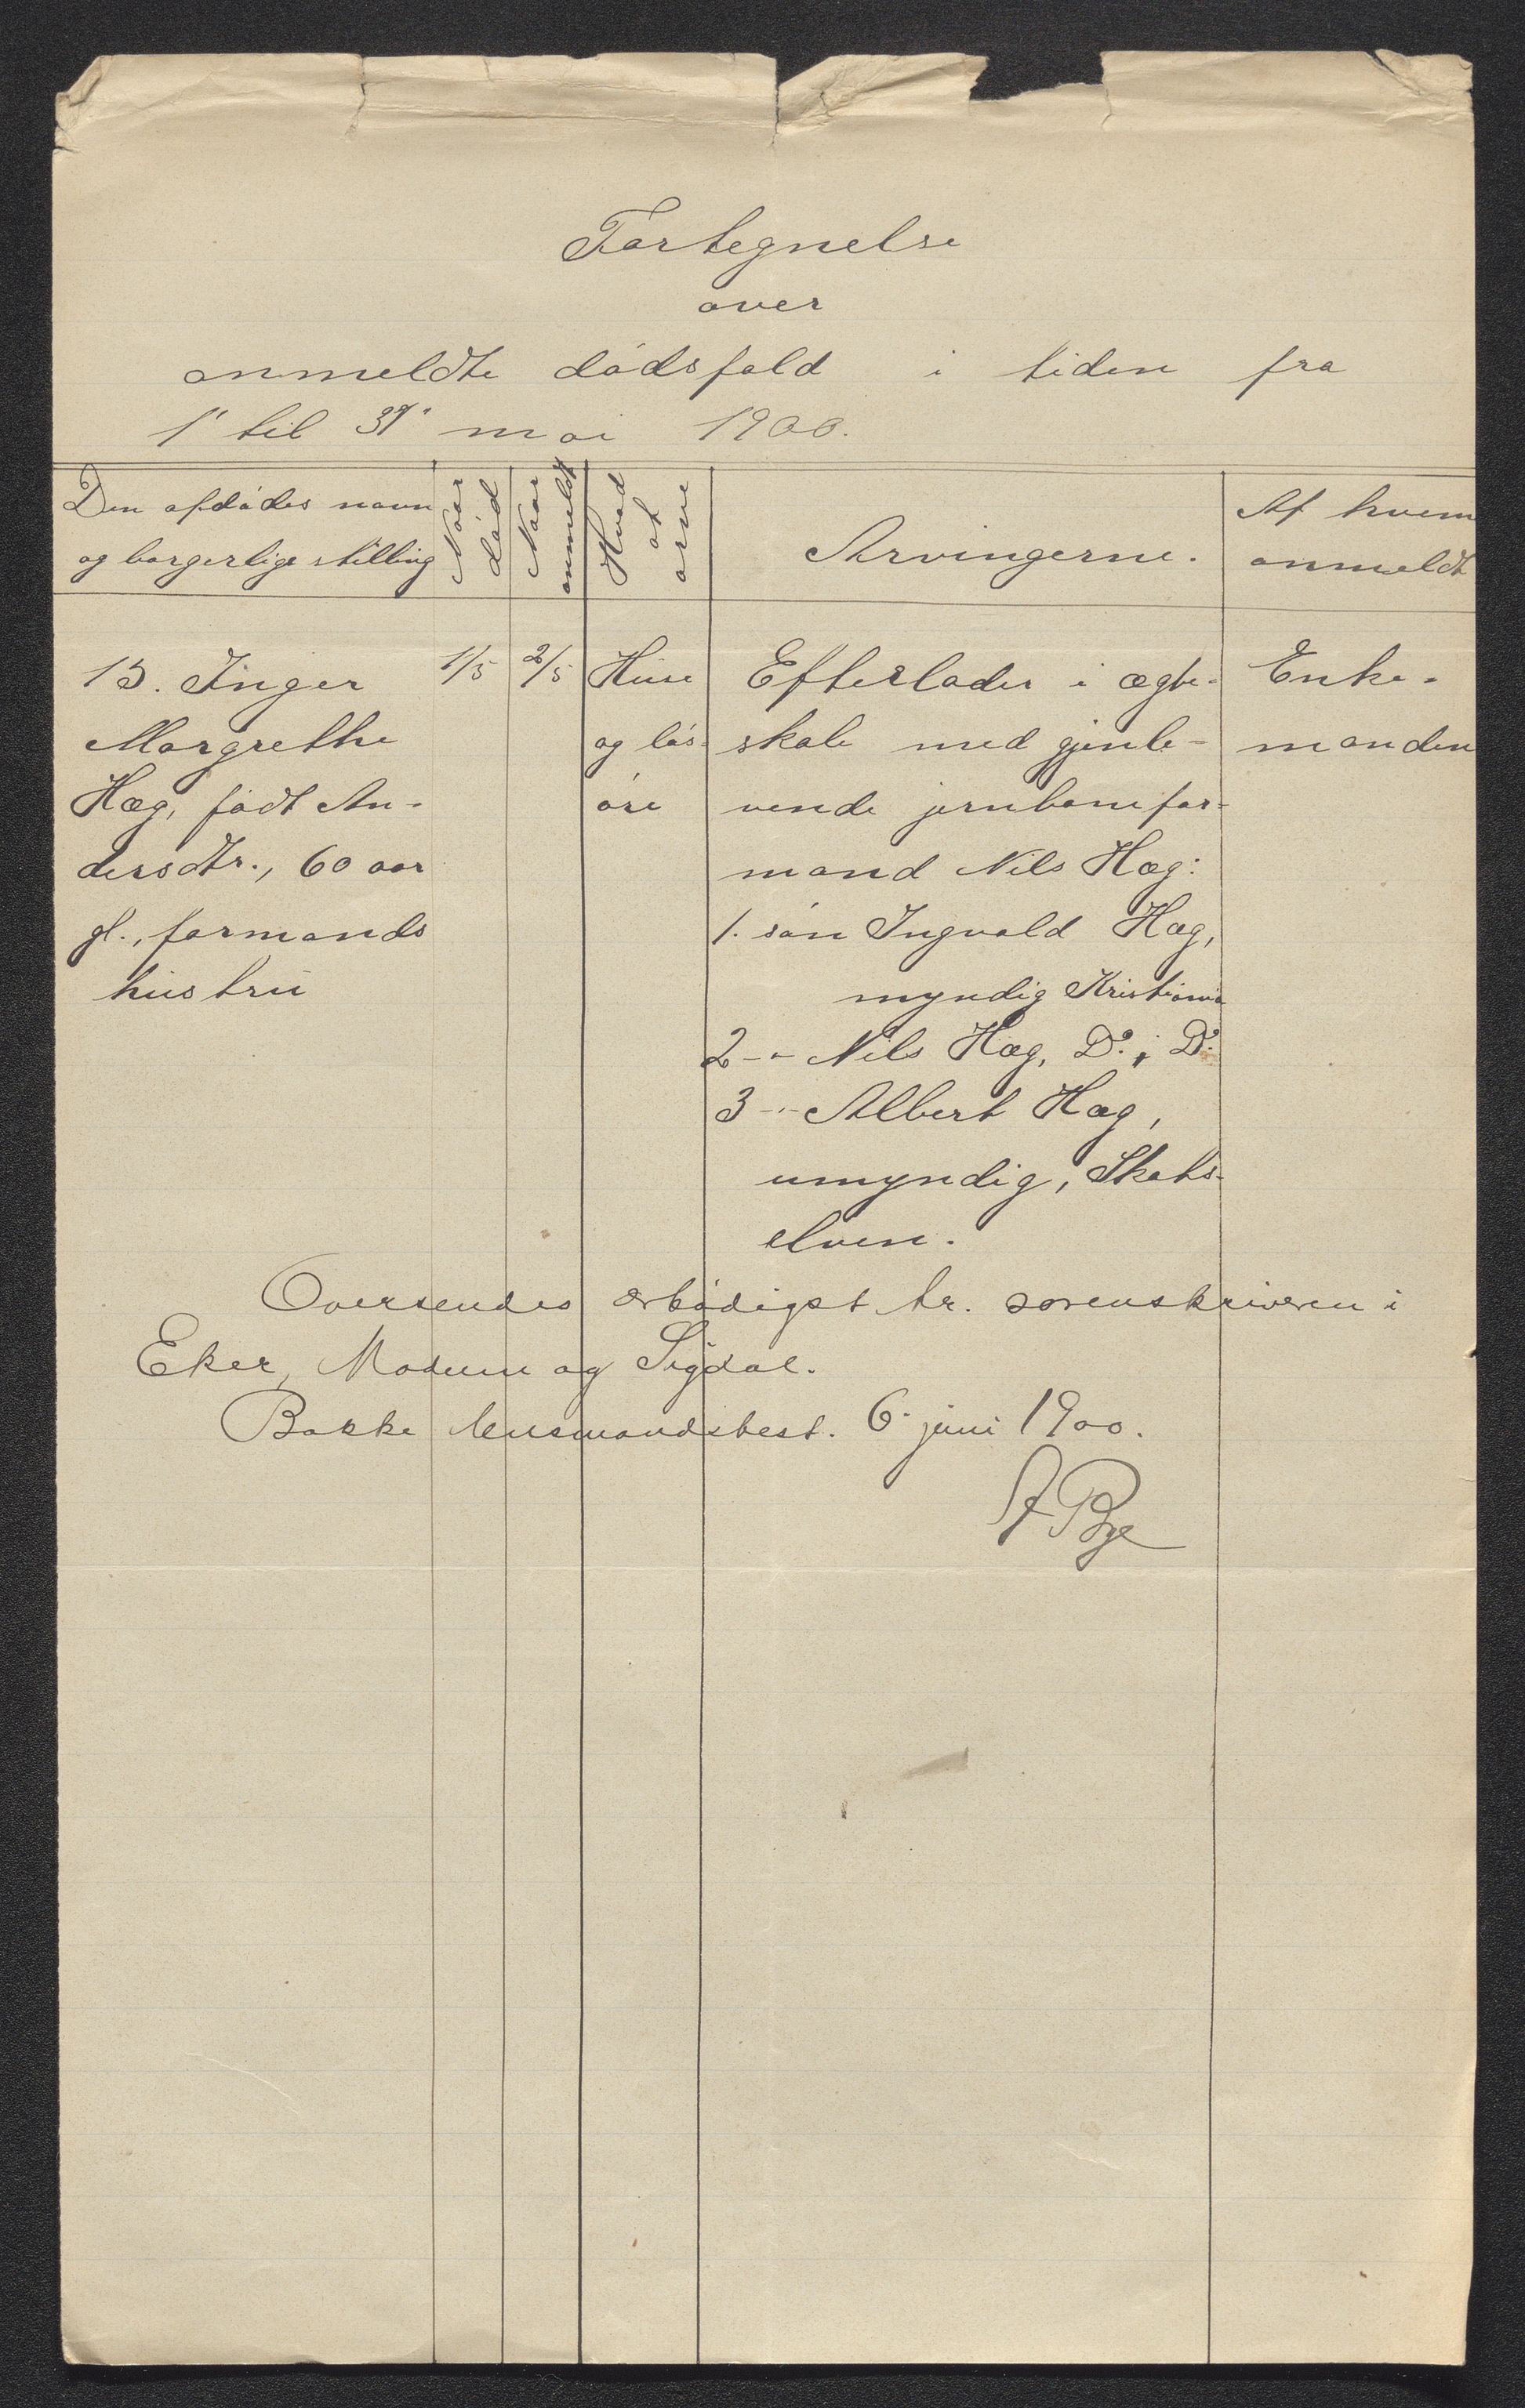 Fortegnelse
over
anmeldte dødsfald i tiden fra
1' til 31' mai 1900.
Den afdødes navn
og borgerlige stilling
Naar
død
Naar
anmeldt
Hvad
at
arve
Arvingerne.
Af hvem
anmeldt
13. Inger
Margrethe
Hæg, født An-
dersdtr., 60 aar
gl., formands
hustru
1/5
2/5
Huse
og løs-
øre
Efterlader i ægte-
skab med gjenle-
vende jernbanefor-
mand Nils Hæg:
1. søn Ingvald Hæg,
myndig Kristiania
2 -"- Nils Hæg, Do. i Do.
3 -"- Albert Hæg,
umyndig, Skots-
elven.
Enke-
manden
Oversendes ærbødigst hr. sorenskriveren i
Eker, Modum og Sigdal.
Bakke lensmandsbest. 6. juni 1900.
Bye